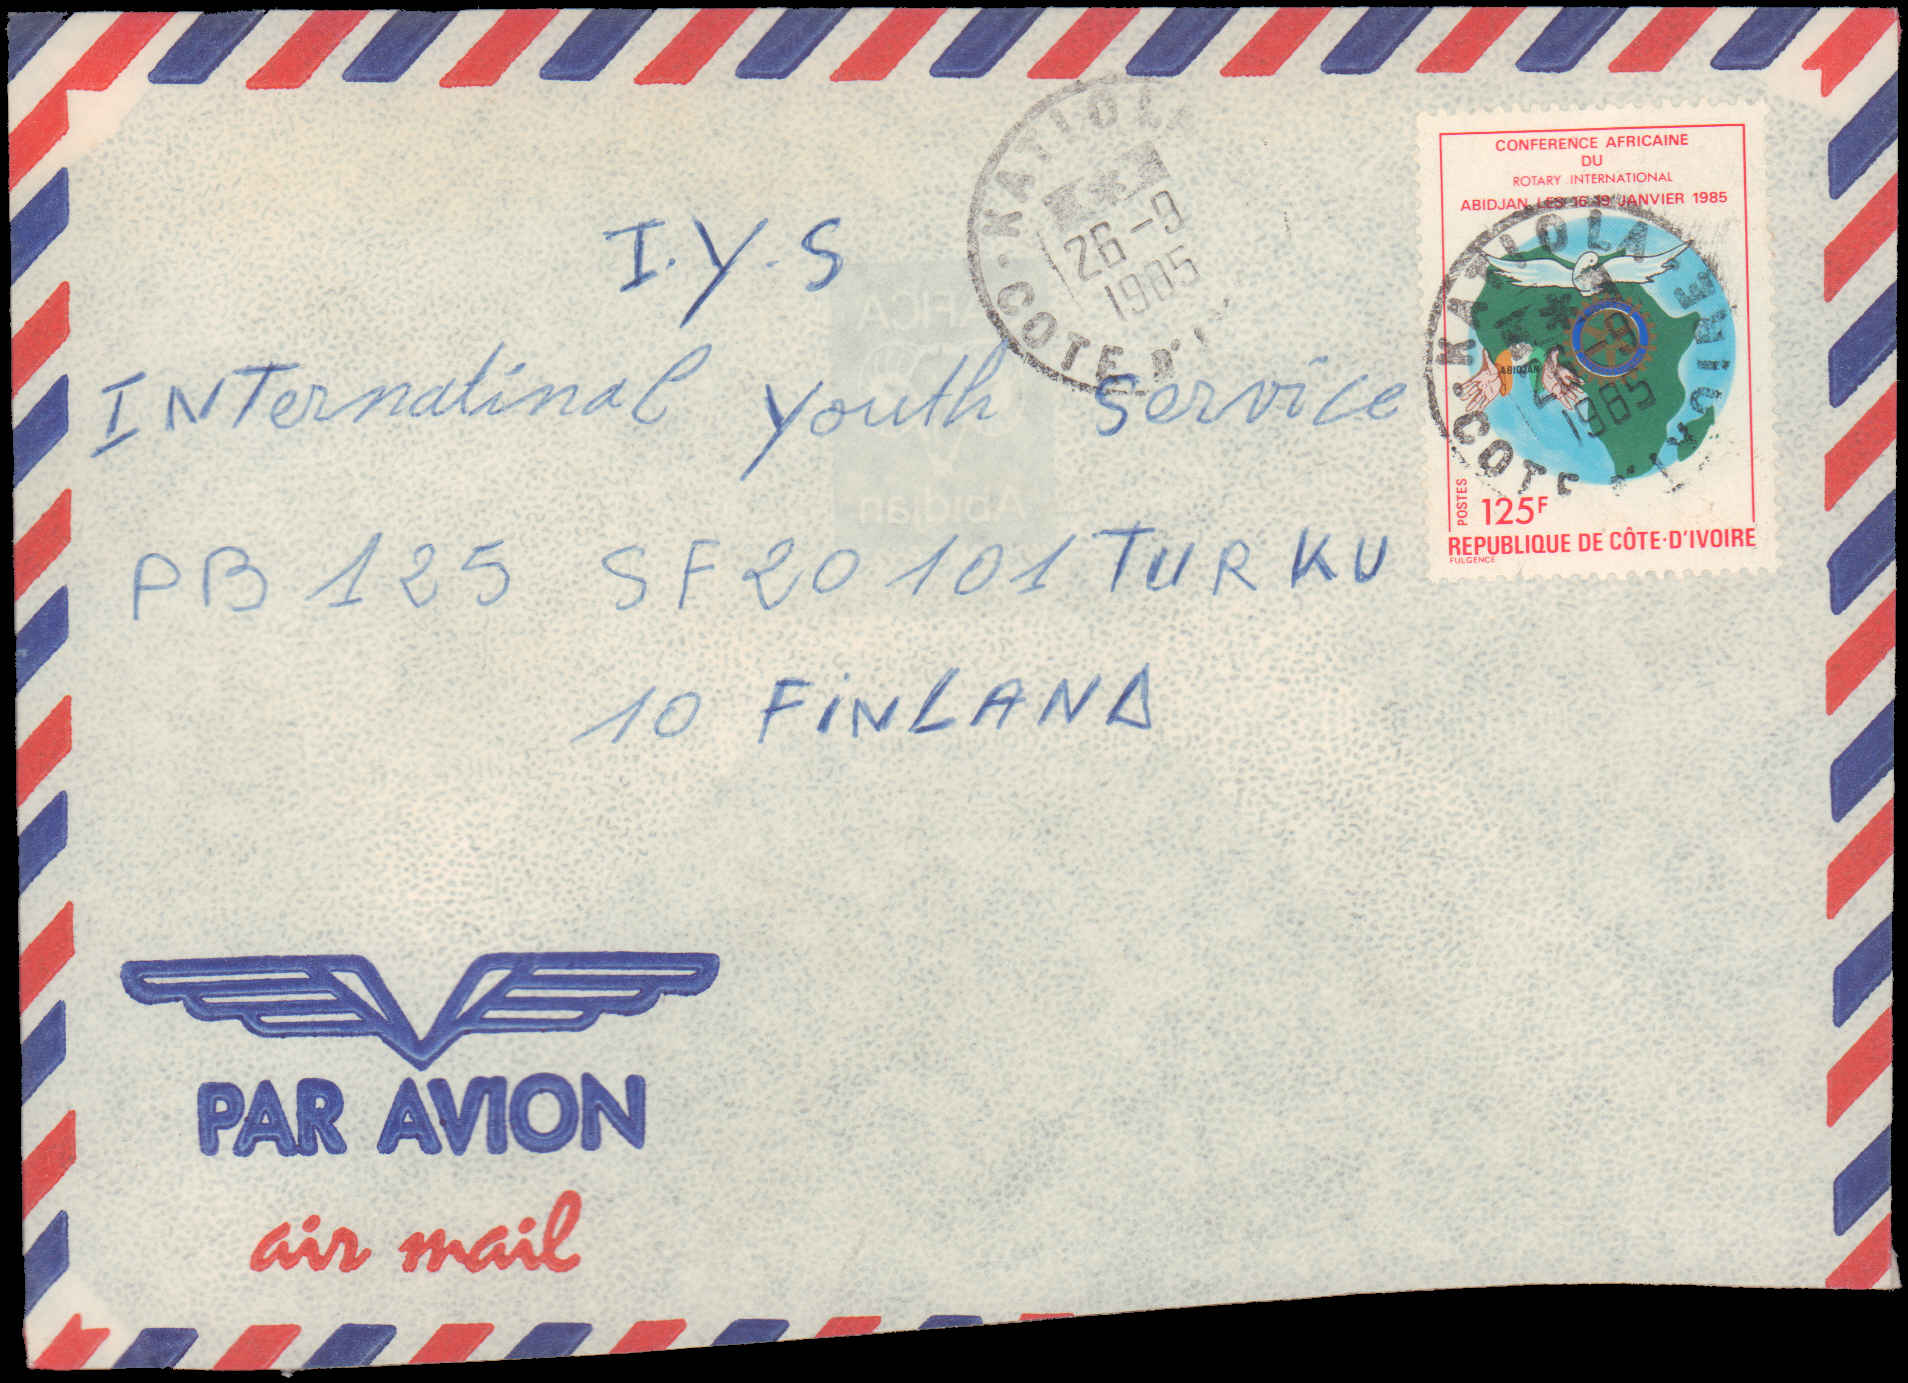 I.Y.S
INTernatinal youth Service
PB 125 SF20101 TURKU
10 FiNLAND
KATIOLA
26-9
1985
COTE D'I
CONFERENCE AFRICAINE
DU
ROTARY INTERNATIONAL
ABIDJAN LES 16-19 JANVIER 1985
KATIOLA
1985
COTE D'IVOIRE
ABIDJAN
POSTES
125F
REPUBLIQUE DE CÔTE-D'IVOIRE
FULGENCE
PAR AVION
air mail